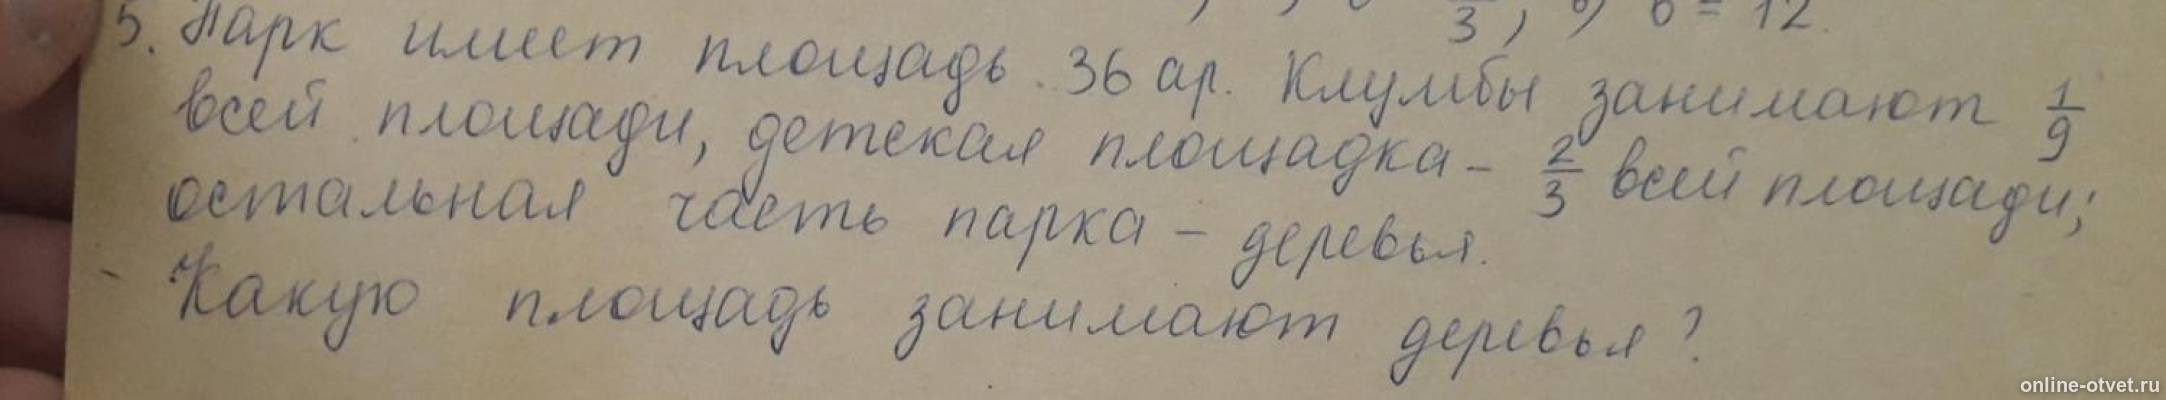 3, в) в = 12.
5. Парк имеет площадь 36 ар. Клумбы занимают 1/9
всей площади, детская площадка - 2/3 всей площади;
остальная часть парка - деревья.
Какую площадь занимают деревья?
online-otvet.ru